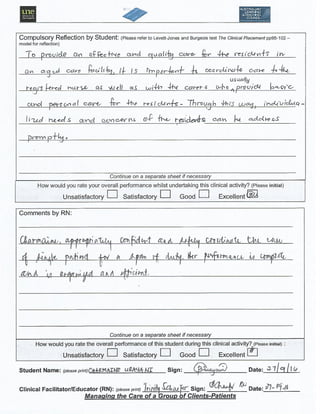 une
Compulsory Reflection by Student: (Please refer to Levett-Jones and Burgeois text The Clinical Placement pp98-102 – model for reflection)
To provide an effective and quality care for the residents in
an aged care facility, It is important to coordinate care to the
usually
registered nurse as well as with the carers who provide basic
and personal care for the residents. Through this way, individua-
lized needs and concerns of the residents can be address
promptly.
Continue on a separate sheet if necessary
How would you rate your overall performance whilst undertaking this clinical activity? (Please initial)
Unsatisfactory Satisfactory Good Excellent
Comments by RN:
Charmaine, appropriately confident and safely coordinate the care
of single patient for a span of duty. her performance is complete
and is organised and efficient.
Continue on a separate sheet if necessary
How would you rate the overall performance of this student during this clinical activity? (Please initial) :
Unsatisfactory Satisfactory Good Excellent
Student Name: (please print) CHARMAINE Sign: Date: 27/9/16
Clinical Facilitator/Educator (RN): (please print) Sign: Date: 27.09.16
Managing the Care of a Group of Clients-Patients